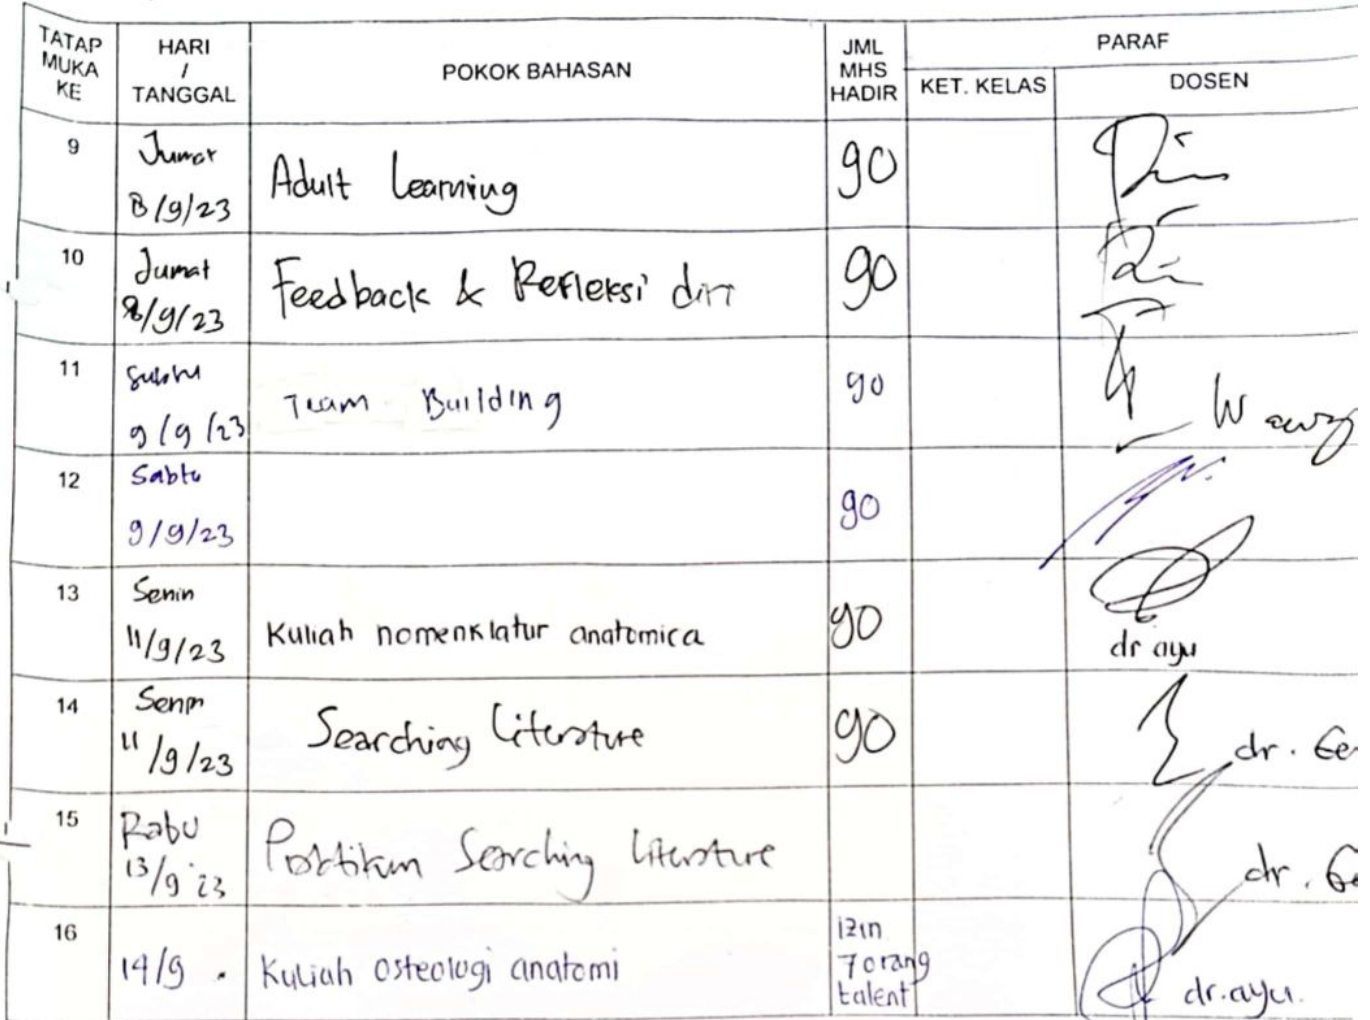 TATAP MUKA KE HARI / TANGGAL POKOK BAHASAN JML MHS HADIR PARAF
KET. KELAS DOSEN
9 Jumat 8/9/23 Adult Learning 90
10 Jumat 8/9/23 Feedback & Refleksi diri 90
11 9/9/23 Team Building 90
12 Sabtu 9/9/23 90
13 Senin 11/9/23 Kuliah nomenklatur anatomica 90 dr ayu
14 Senin 11/9/23 Searching Literature 90 dr.
15 Rabu 13/9 23 Praktikum Searching Literature dr.
16 14/9 . Kuliah osteologi anatomi izin 7 orang talent dr.ayu.